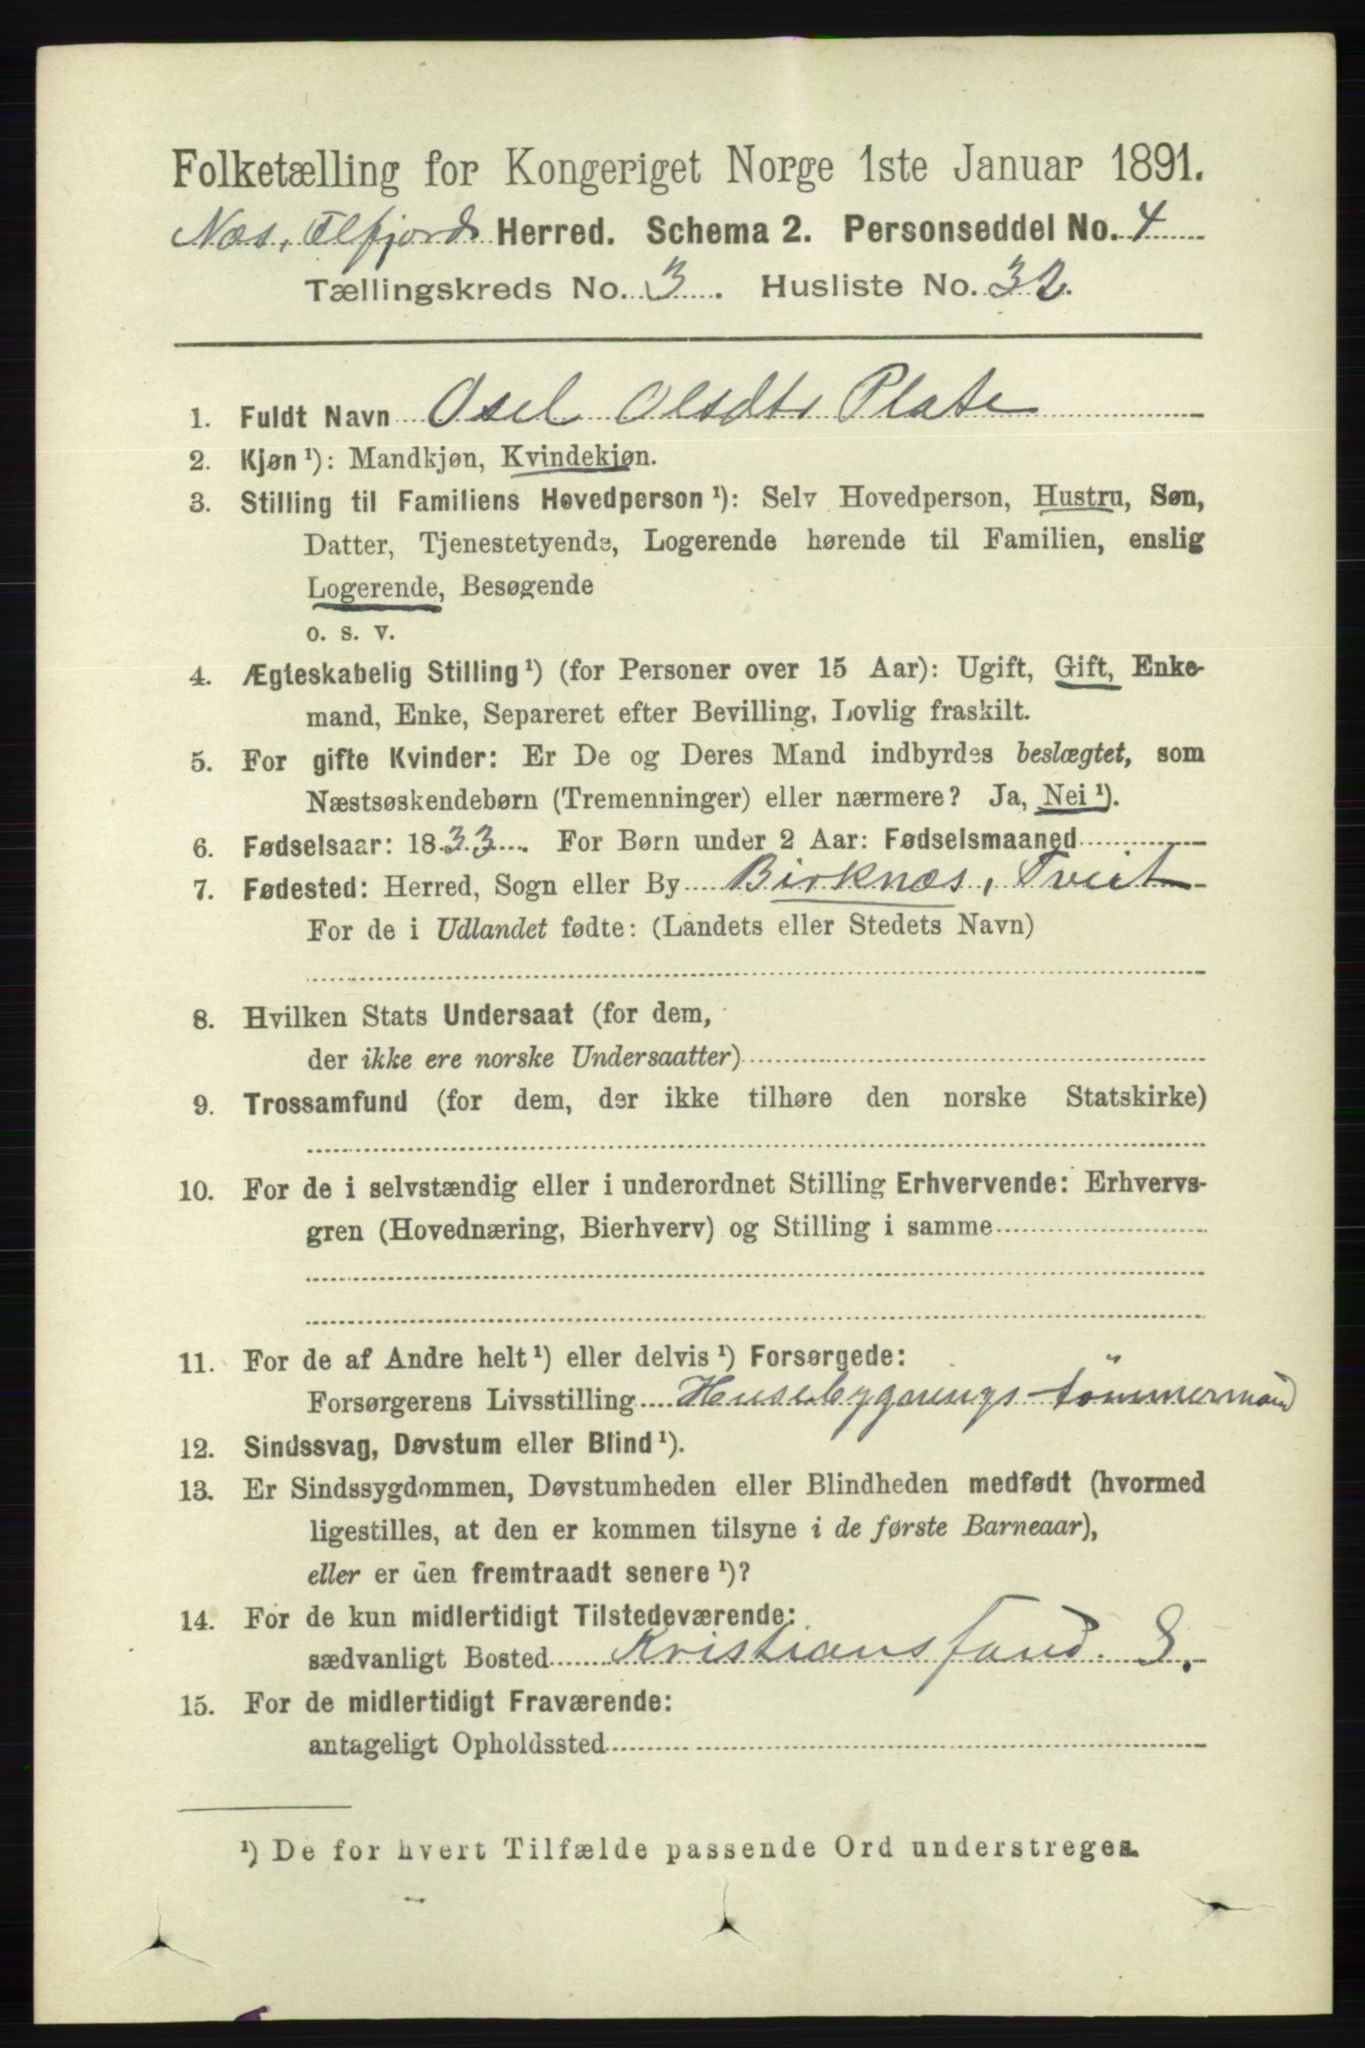 Folketælling for Kongeriget Norge 1ste Januar 1891.
Næs, Elfjords Herred. Schema 2. Personseddel No. 4
Tællingskreds No. 3. Husliste No. 32.
1. Fuldt Navn Osel Olsdtr Plate
2. Kjøn ¹): Mandkjøn, Kvindekjøn.
3. Stilling til Familiens Hovedperson ¹): Selv Hovedperson, Hustru, Søn,
Datter, Tjenestetyende, Logerende hørende til Familien, enslig
Logerende, Besøgende
o. s. v.
4. Ægteskabelig Stilling ¹) (for Personer over 15 Aar): Ugift, Gift, Enke-
mand, Enke, Separeret efter Bevilling, Lovlig fraskilt.
5. For gifte Kvinder: Er De og Deres Mand indbyrdes beslægtet, som
Næstsøskendebørn (Tremenninger) eller nærmere? Ja, Nei ¹).
6. Fødselsaar: 1833. For Børn under 2 Aar: Fødselsmaaned
7. Fødested: Herred, Sogn eller By Birknæs, Tveit
For de i Udlandet fødte: (Landets eller Stedets Navn)
8. Hvilken Stats Undersaat (for dem,
der ikke ere norske Undersaatter)
9. Trossamfund (for dem, der ikke tilhøre den norske Statskirke)
10. For de i selvstændig eller i underordnet Stilling Erhvervende: Erhvervs-
gren (Hovednæring, Bierhverv) og Stilling i samme
11. For de af Andre helt ¹) eller delvis ¹) Forsørgede:
Forsørgerens Livsstilling Husebygnings-tömmermand
12. Sindssvag, Døvstum eller Blind ¹).
13. Er Sindssygdommen, Døvstumheden eller Blindheden medfødt (hvormed
ligestilles, at den er kommen tilsyne i de første Barneaar),
eller er den fremtraadt senere ¹)?
14. For de kun midlertidigt Tilstedeværende:
sædvanligt Bosted Kristianssand. S.
15. For de midlertidigt Fraværende:
antageligt Opholdssted
¹) De for hvert Tilfælde passende Ord understreges.